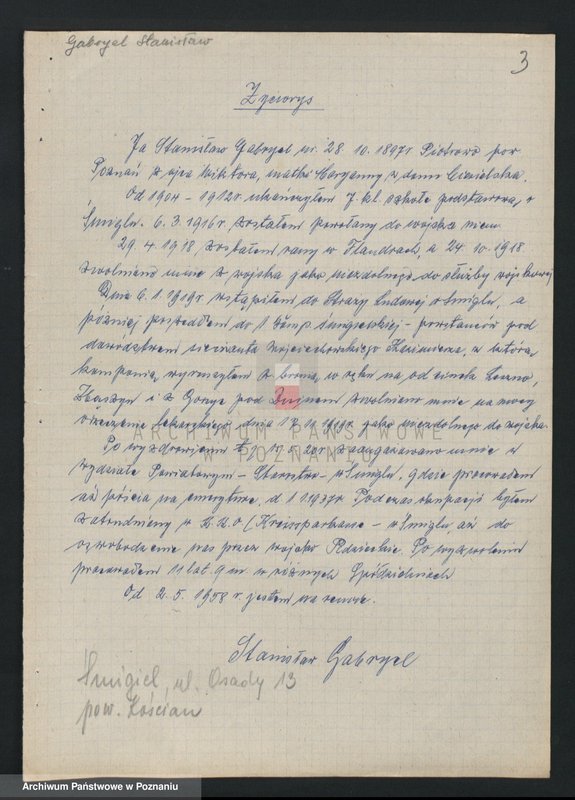 Gabryel Stanisław
3
Życiorys
Ja Stanisław Gabryel ur. 28. 10. 1897r Piotrowo pow
Poznań z ojca Wiktora, matki Maryanny z domu
Od 1904 - 1912r ukończyłem 7. kl. szkołę podstawową w
Śmiglu. 6. 3. 1916r zostałem powołany do wojska niem.
29. 4. 1918 zostałem rany w Flandrach, a 24. 10. 1918.
zwolniono mnie z wojska jako niezdolnego do służby wojskowej
Dnia 6. 1. 1919r wstąpiłem do Straży Ludowej w Śmiglu, a
później poszedłem do 1 komp śmigielskiej - powstańców pod
dowództwem sierżanta Wojciechowskiego Kazimierza, z którą
kompanią wyruszyłem z bronią w ręku na odcinek Leszno,
Zbąszyń i z pod zwolniono mnie na mocy
orzeczenia lekarskiego dnia 17. 11. 1919r jako niezdolnego do wojska.
Po wyzdrowieniu zaangażowano mnie w
Wydziale Powiatowym - Starostwo - w Śmiglu, gdzie pracowałem
aż pójścia na emeryturę, d 1 1937r. Podczas okupacji byłem
zatrudniony w K.K.O (Kreissparkasse - w Śmiglu, aż do
oswobodzenia nas przez wojsko Radzieckie. Po wyzwoleniu
pracowałem 11 lat 9 m. w różnych Spółdzielniach
Od 2. 5. 1958 r. jestem na rencie.
Stanisław Gabryel
Śmigiel, ul. Osady 13
pow. Kościan
ARCHIWUM PAŃSTWOWE
W POZNANIU
Archiwum Państwowe w Poznaniu